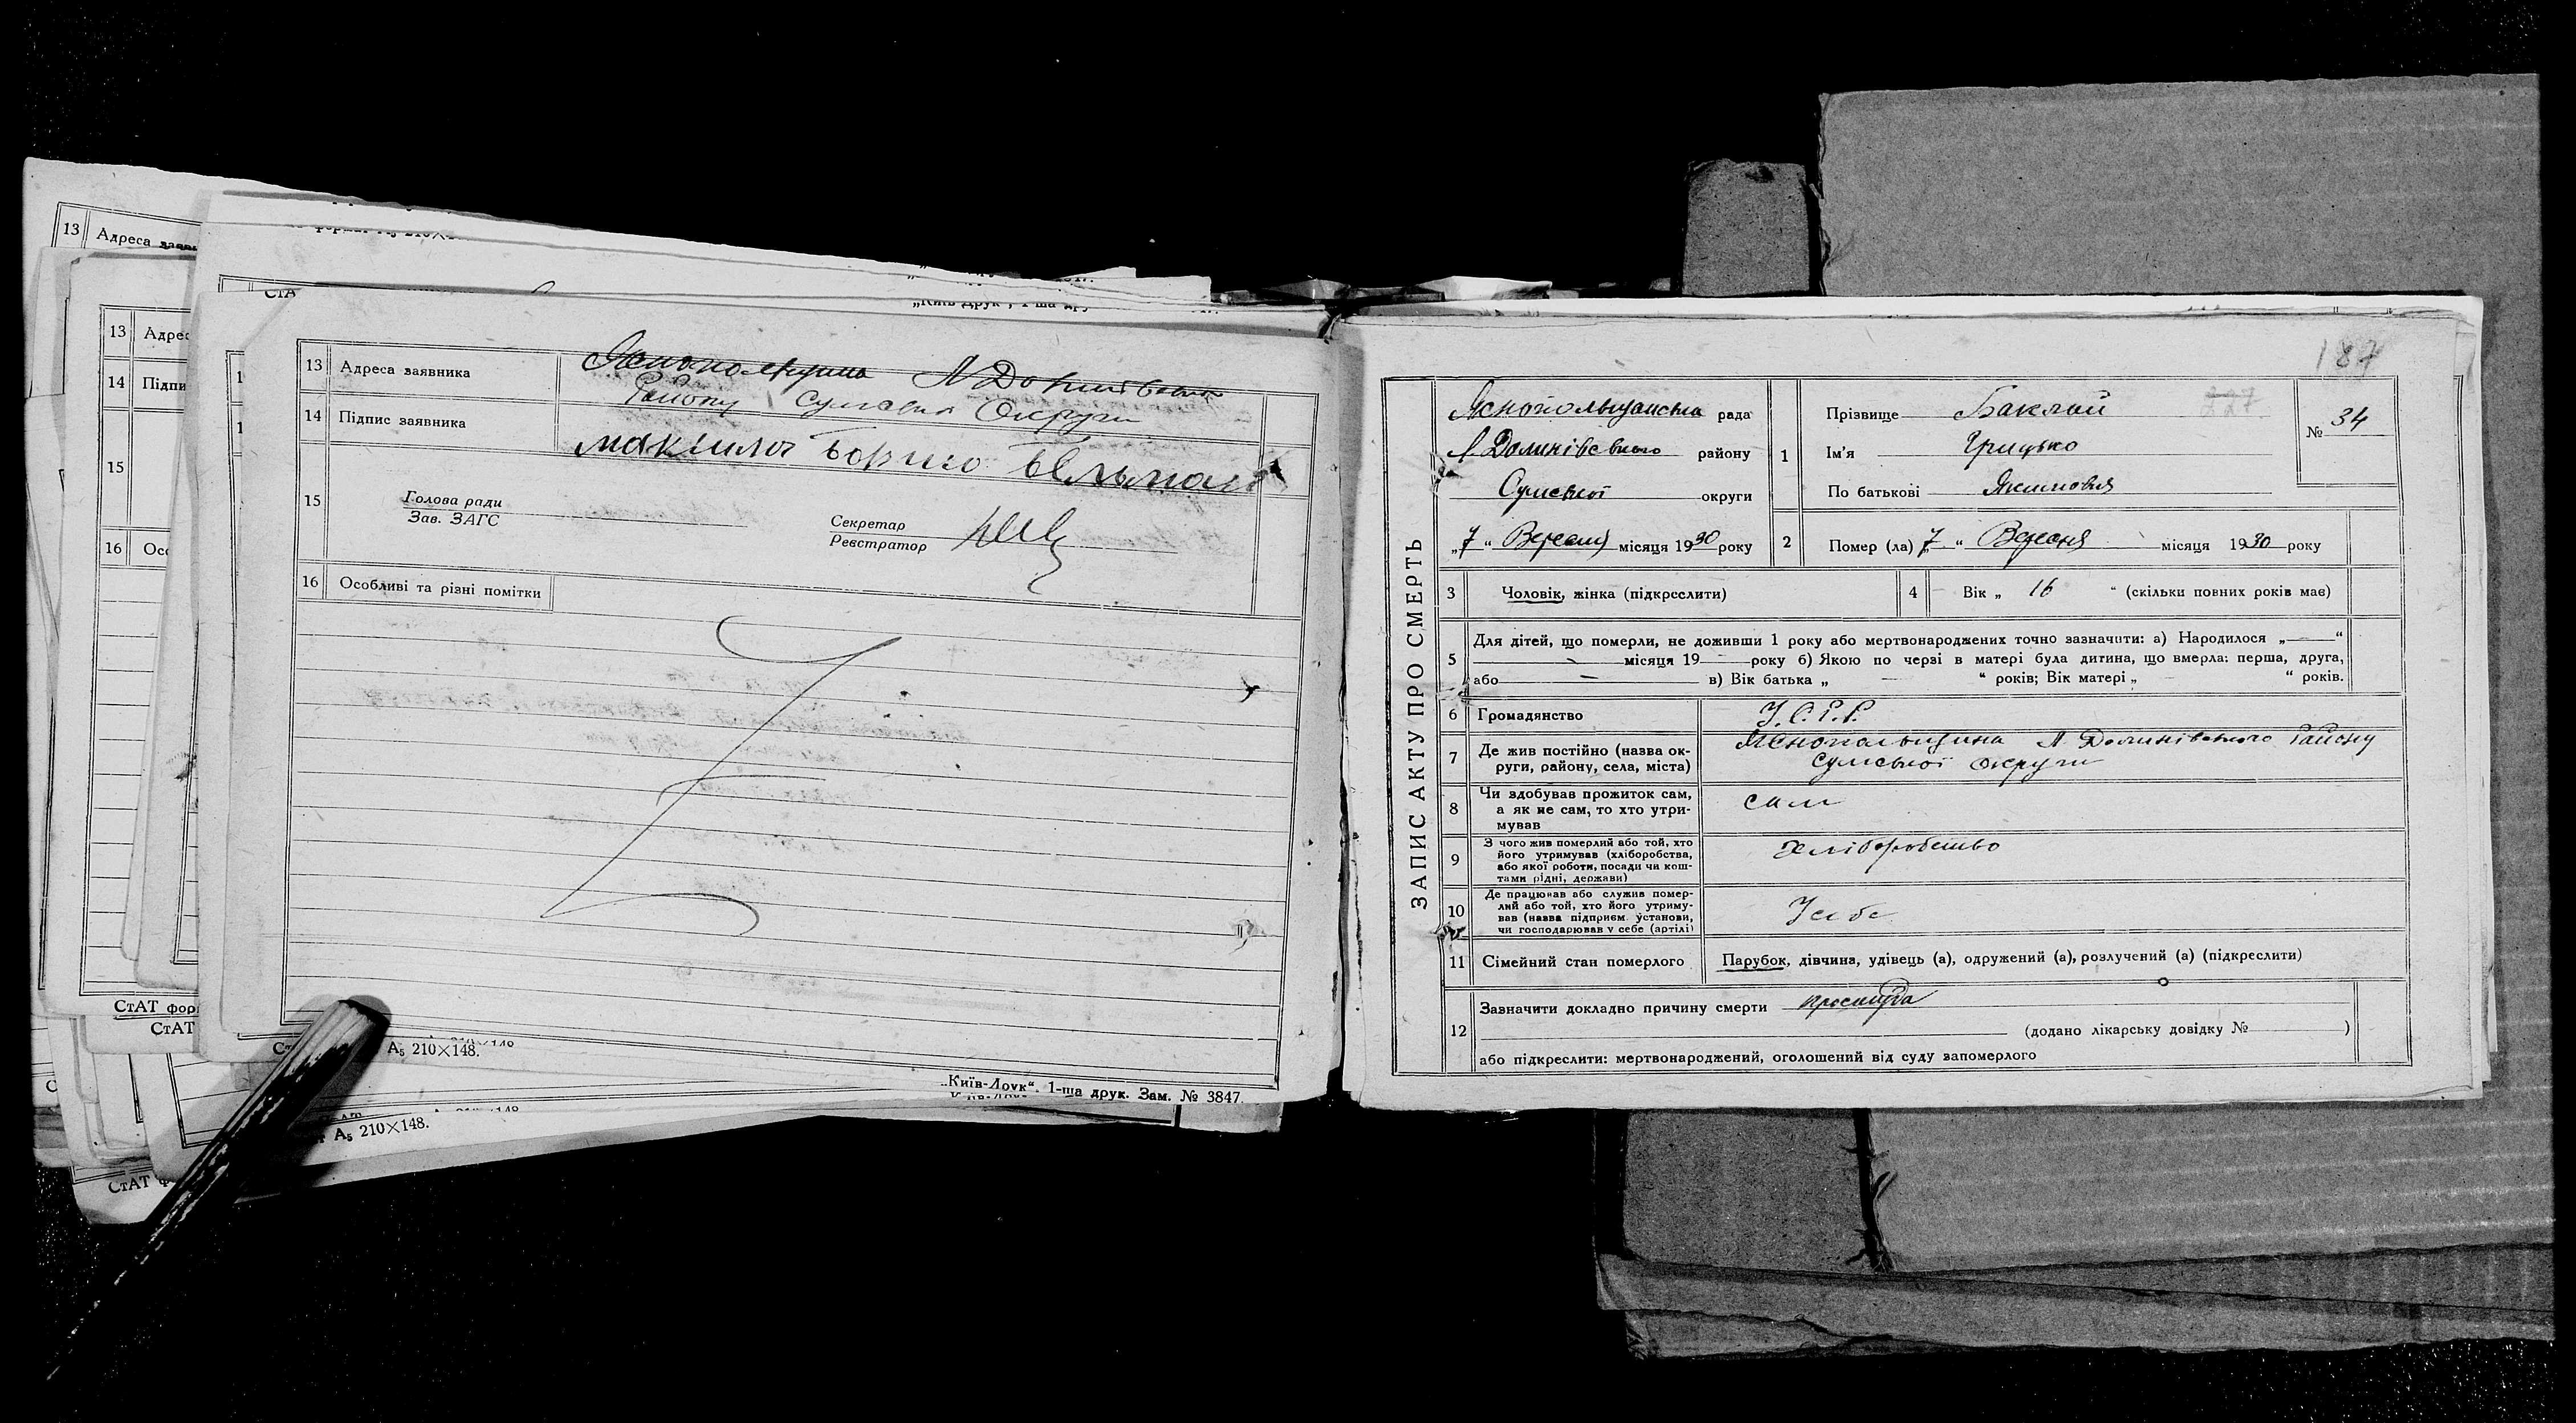 13 Адреса заявника Яснопольщина Л Долинівського
Району Сумської Округи
14 Підпис заявника
15 Голова ради
Зав. ЗАГС
Секретар
Реєстратор
16 Особливі та різні помітки
13 Адреса
13 Адрес
14 Підпи
15
16 Ос
СтАТ фор
СтАТ
А5 210×148.
„Київ-Друк“. 1-ша друк. Зам. № 3847.
А5 210×148.
СтАТ ф
187
227
ЗАПИС АКТУ ПРО СМЕРТЬ
Яснопольщанська рада
Л. Долинівського району
Сумської округи
„7“ Вересня місяця 1930 року
1 Прізвище Баклай
Ім'я Грицько
По батькові Якимович
№ 34
2 Помер (ла) „7“ Вересня місяця 1930 року
3 Чоловік, жінка (підкреслити)
4 Вік „ 16 “ (скільки повних років має)
5 Для дітей, що померли, не доживши 1 року або мертвонароджених точно зазначити: а) Народилося „ — “
місяця 19 — року б) Якою по черзі в матері була дитина, що вмерла: перша, друга,
або — в) Вік батька „ — “ років; Вік матері „ — “ років.
6 Громадянство У.С.Р.Р.
7 Де жив постійно (назва ок-
руги, району, села, міста) Яснопольщина Л Долинівського Району
Сумської округи
8 Чи здобував прожиток сам,
а як не сам, то хто утри-
мував сам
9 З чого жив померлий або той, хто
його утримував (хліборобства,
або якої роботи, посади чи кош-
тами рідні, держави) хліборобство
10 Де працював або служив помер-
лий або той, хто його утриму-
вав (назва підприєм. установи,
чи господарював у себе (артілі) У себе
11 Сімейний стан померлого Парубок, дівчина, удівець (а), одружений (а), розлучений (а) (підкреслити)
12 Зазначити докладно причину смерти простуда
(додано лікарську довідку № )
або підкреслити: мертвонароджений, оголошений від суду запомерлого